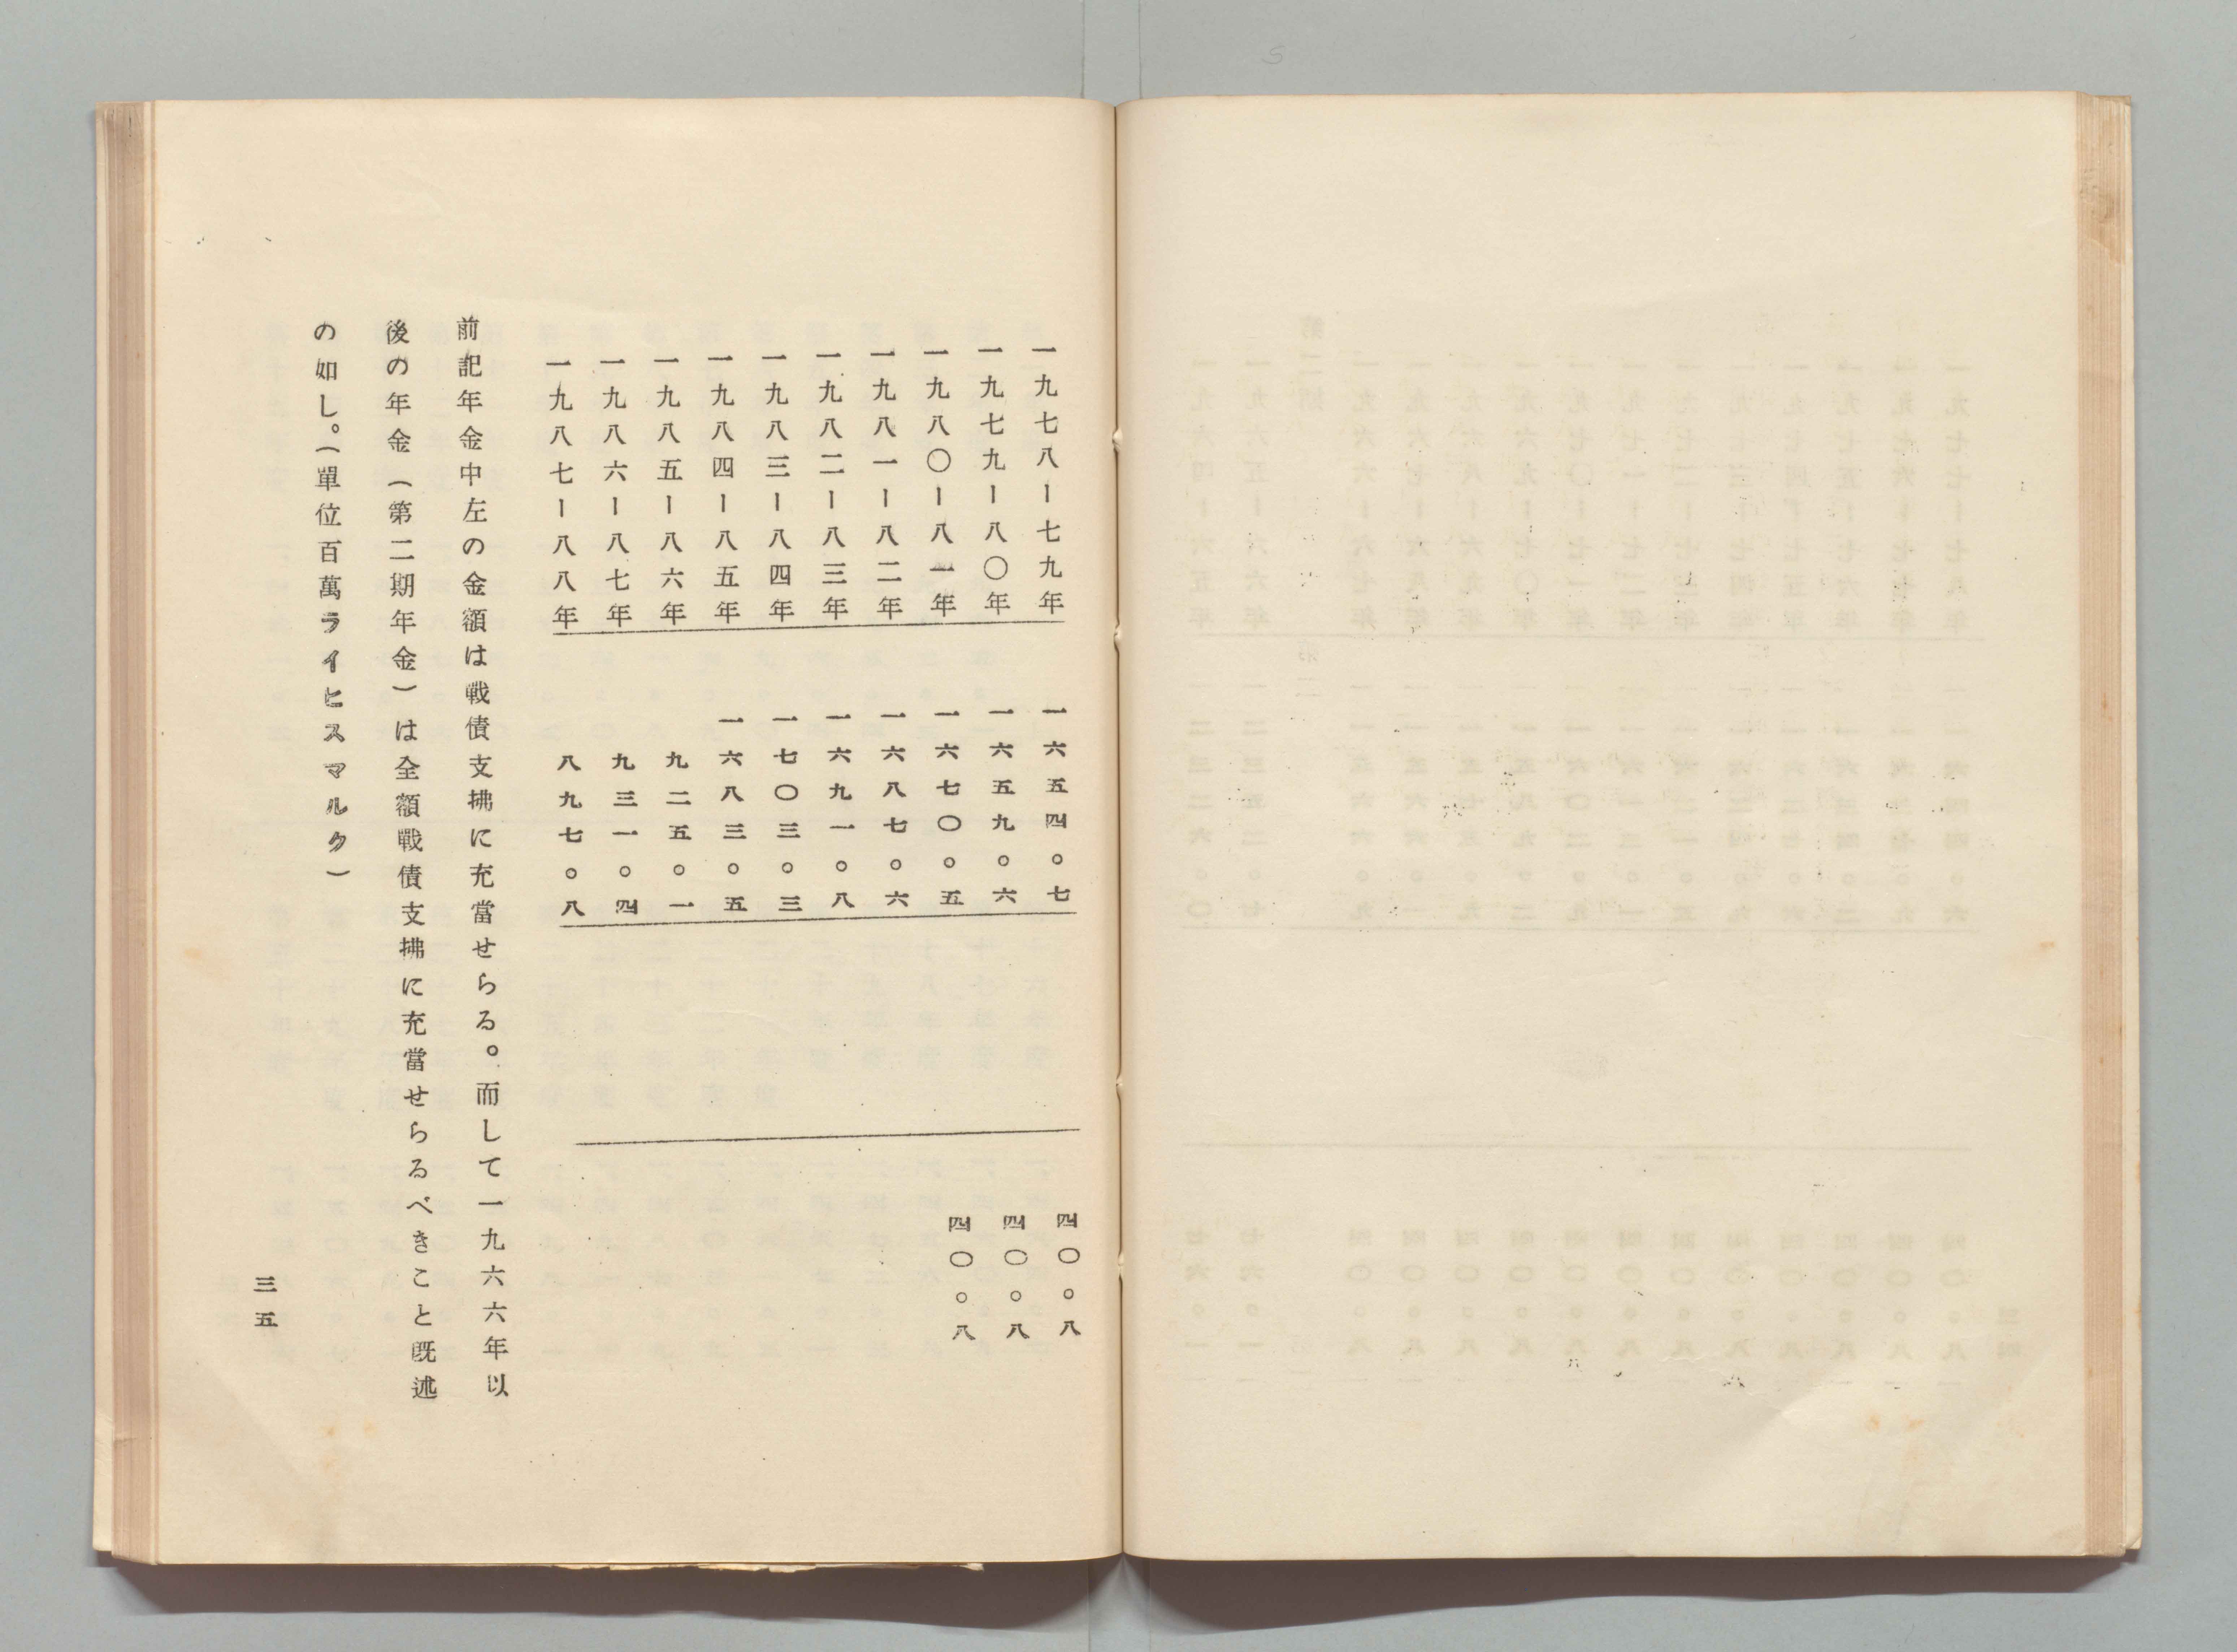 一九七八ー七九年　一六五四。七　四〇。八
一九七九ー八〇年　一六五九。六　四〇。八
一九八〇ー八一年　一六七〇。五　四〇。八
一九八一ー八二年　一六八七。六
一九八二ー八三年　一六九一。八
一九八三ー八四年　一七〇三。三
一九八四ー八五年　一六八三。五
一九八五ー八六年　九二五。一
一九八六ー八七年　九三一。四
一九八七ー八八年　八九七。八
前記年金中左の金額は戰債支拂に充當せらる。而して一九六六年以
後の年金（第二期年金）は全額戰債支拂に充當せらるべきこと既述
の如し。（單位百萬ライヒスマルク）
三五